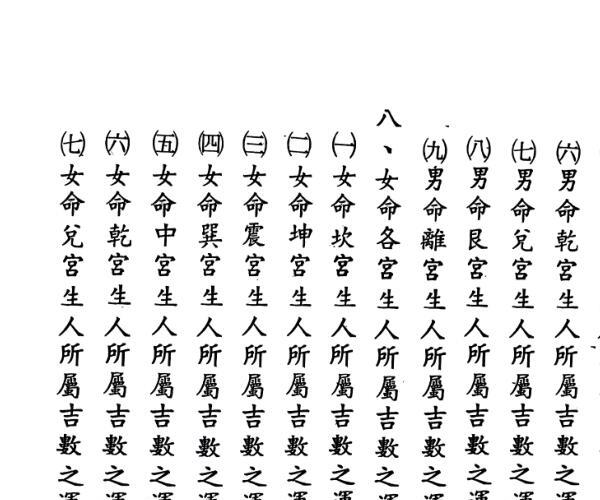 ㈥男命乾宮生人所屬吉數之運
㈦男命兌宮生人所屬吉數之運
㈧男命艮宮生人所屬吉數之運
㈨男命離宮生人所屬吉數之運
八、女命各宮生人所屬吉數之運
㈠女命坎宮生人所屬吉數之運
㈡女命坤宮生人所屬吉數之運
㈢女命震宮生人所屬吉數之運
㈣女命巽宮生人所屬吉數之運
㈤女命中宮生人所屬吉數之運
㈥女命乾宮生人所屬吉數之運
㈦女命兌宮生人所屬吉數之運